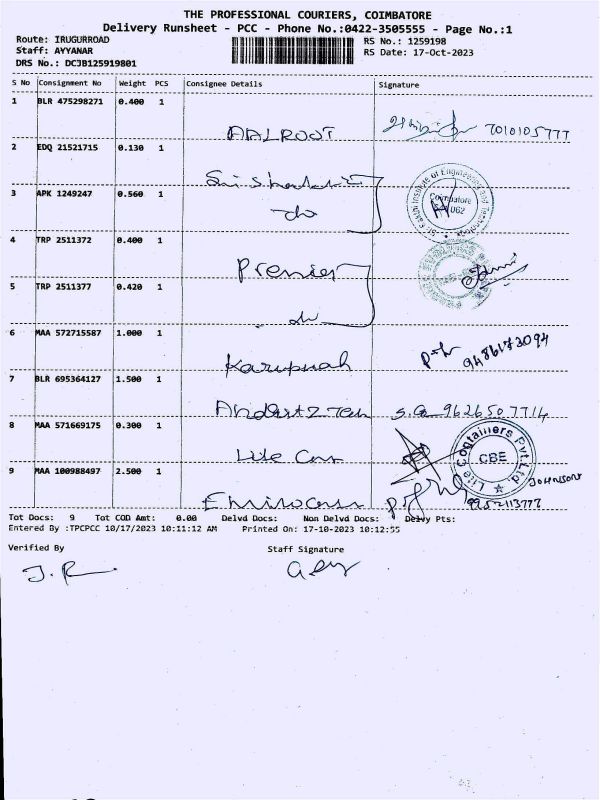 THE PROFESSIONAL COURIERS, COIMBATORE
Delivery Runsheet - PCC - Phone No.:0422-3505555 - Page No.:1
Route: IRUGURROAD RS No.: 1259198
Staff: AYYANAR RS Date: 17-Oct-2023
DRS No.: DCJB125919801
S No Consignment No Weight PCS Consignee Details Signature
1 BLR 475298271 0.400 1
AALROOT 7010105777
2 EDQ 21521715 0.130 1
Sri Shakthi
3 APK 1249247 0.560 1
do
Sri Shakthi Institute of Engineering and Technology
Coimbatore
641 062
4 TRP 2511372 0.400 1
Premier
5 TRP 2511377 0.420 1
do
6 MAA 572715587 1.000 1
Karupuah 9486173094
7 BLR 695364127 1.500 1
9626507714
8 MAA 571669175 0.300 1
Lite Con
Lite Containers Pvt.Ltd.
CBE
9 MAA 100988497 2.500 1
JOHNSON
9952113777
Tot Docs: 9 Tot COD Amt: 0.00 Delvd Docs: Non Delvd Docs: Delvy Pts:
Entered By :TPCPCC 10/17/2023 10:11:12 AM Printed On: 17-10-2023 10:12:55
Verified By Staff Signature